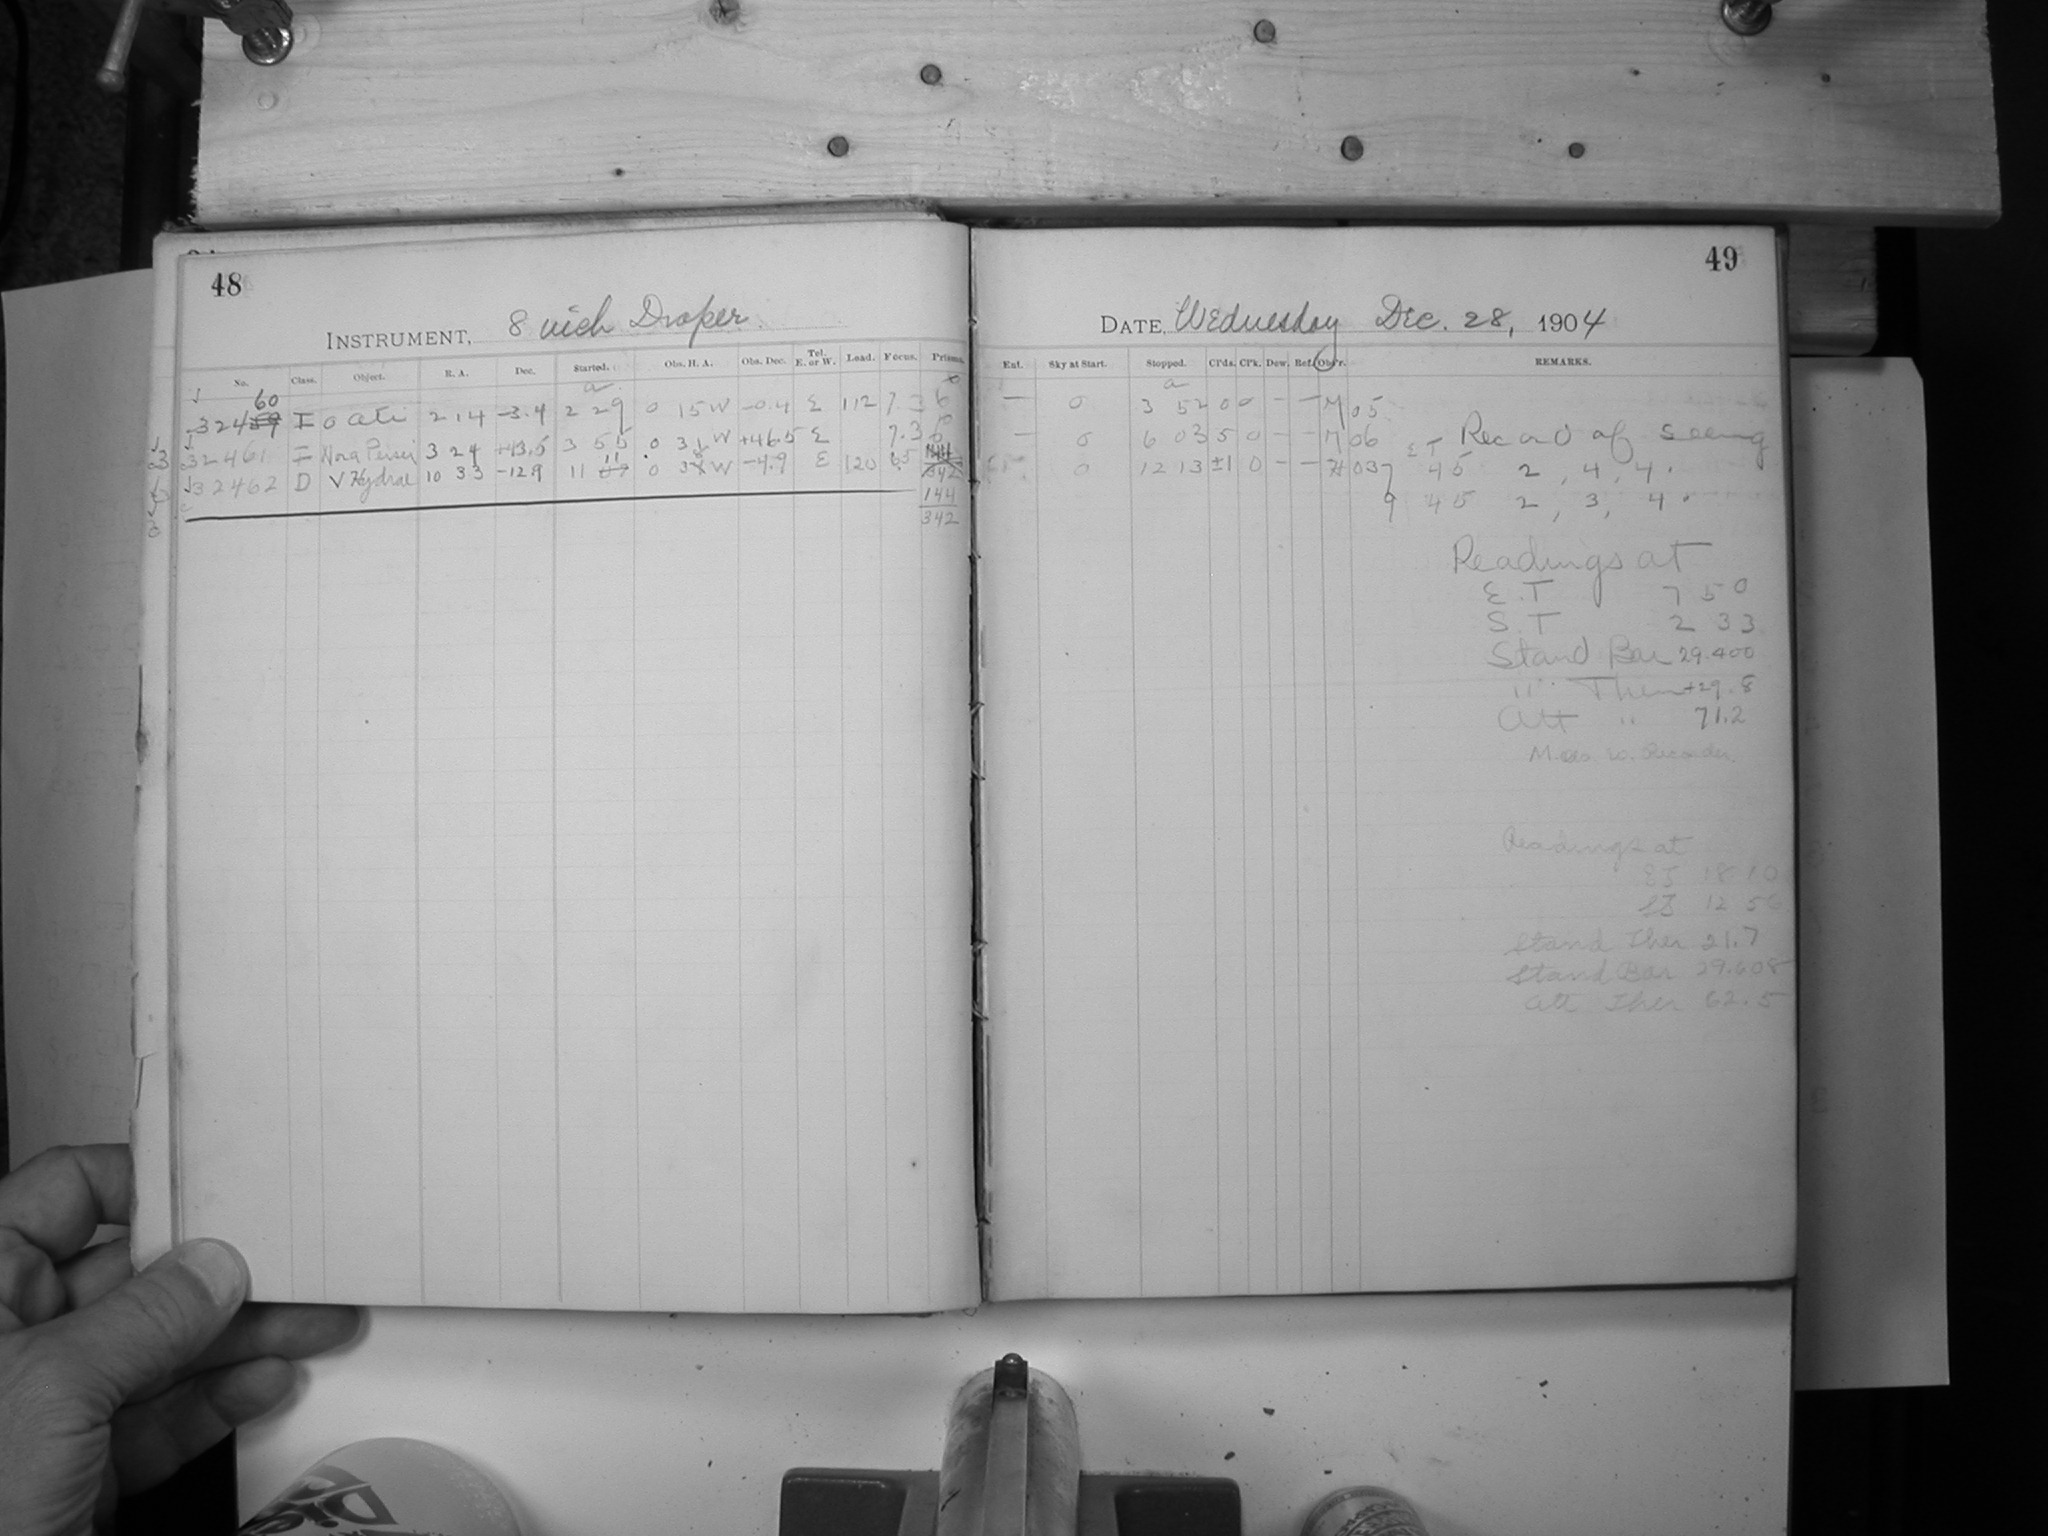 48
INSTRUMENT, 8 inch Draper.
No. Class. Object. R. A. Dec. Started. Obs. H. A. Obs. Dec. Tel. E. or W. Load. Focus. Prisms.
a
60
32459 I o Ceti 2 14 -3.4 2 29 0 15 W -0.4 E 112 7.3 6
32461 I Nova Persei 3 24 +43.5 3 55 0 31 W +46.5 E 7.3 6
11
32462 D V Hydrae 10 33 -12.9 11 0 38 W -4.9 E 120 6.5 342
144
342
49
DATE, Wednesday Dec. 28, 1904
Ent. Sky at Start. Stopped. Cl'ds. Cl'k. Dew. Ref. Obs'r. REMARKS.
a
— 0 3 52 0 0 – – M 05
— 0 6 03 5 0 – – M 06 Record of Seeing
0 12 13 ±1 0 – – H 03
E T 7 45 2, 4, 4.
9 45 2, 3, 4.
Readings at
E. T 7 50
S. T 2 33
Stand Bar 29.400
" Ther +29.8
Att " 71.2
Recorder
Readings at
18 10
12 50
Stand Ther 21.7
Stand Bar 29.608
Att Ther 62.5
Die